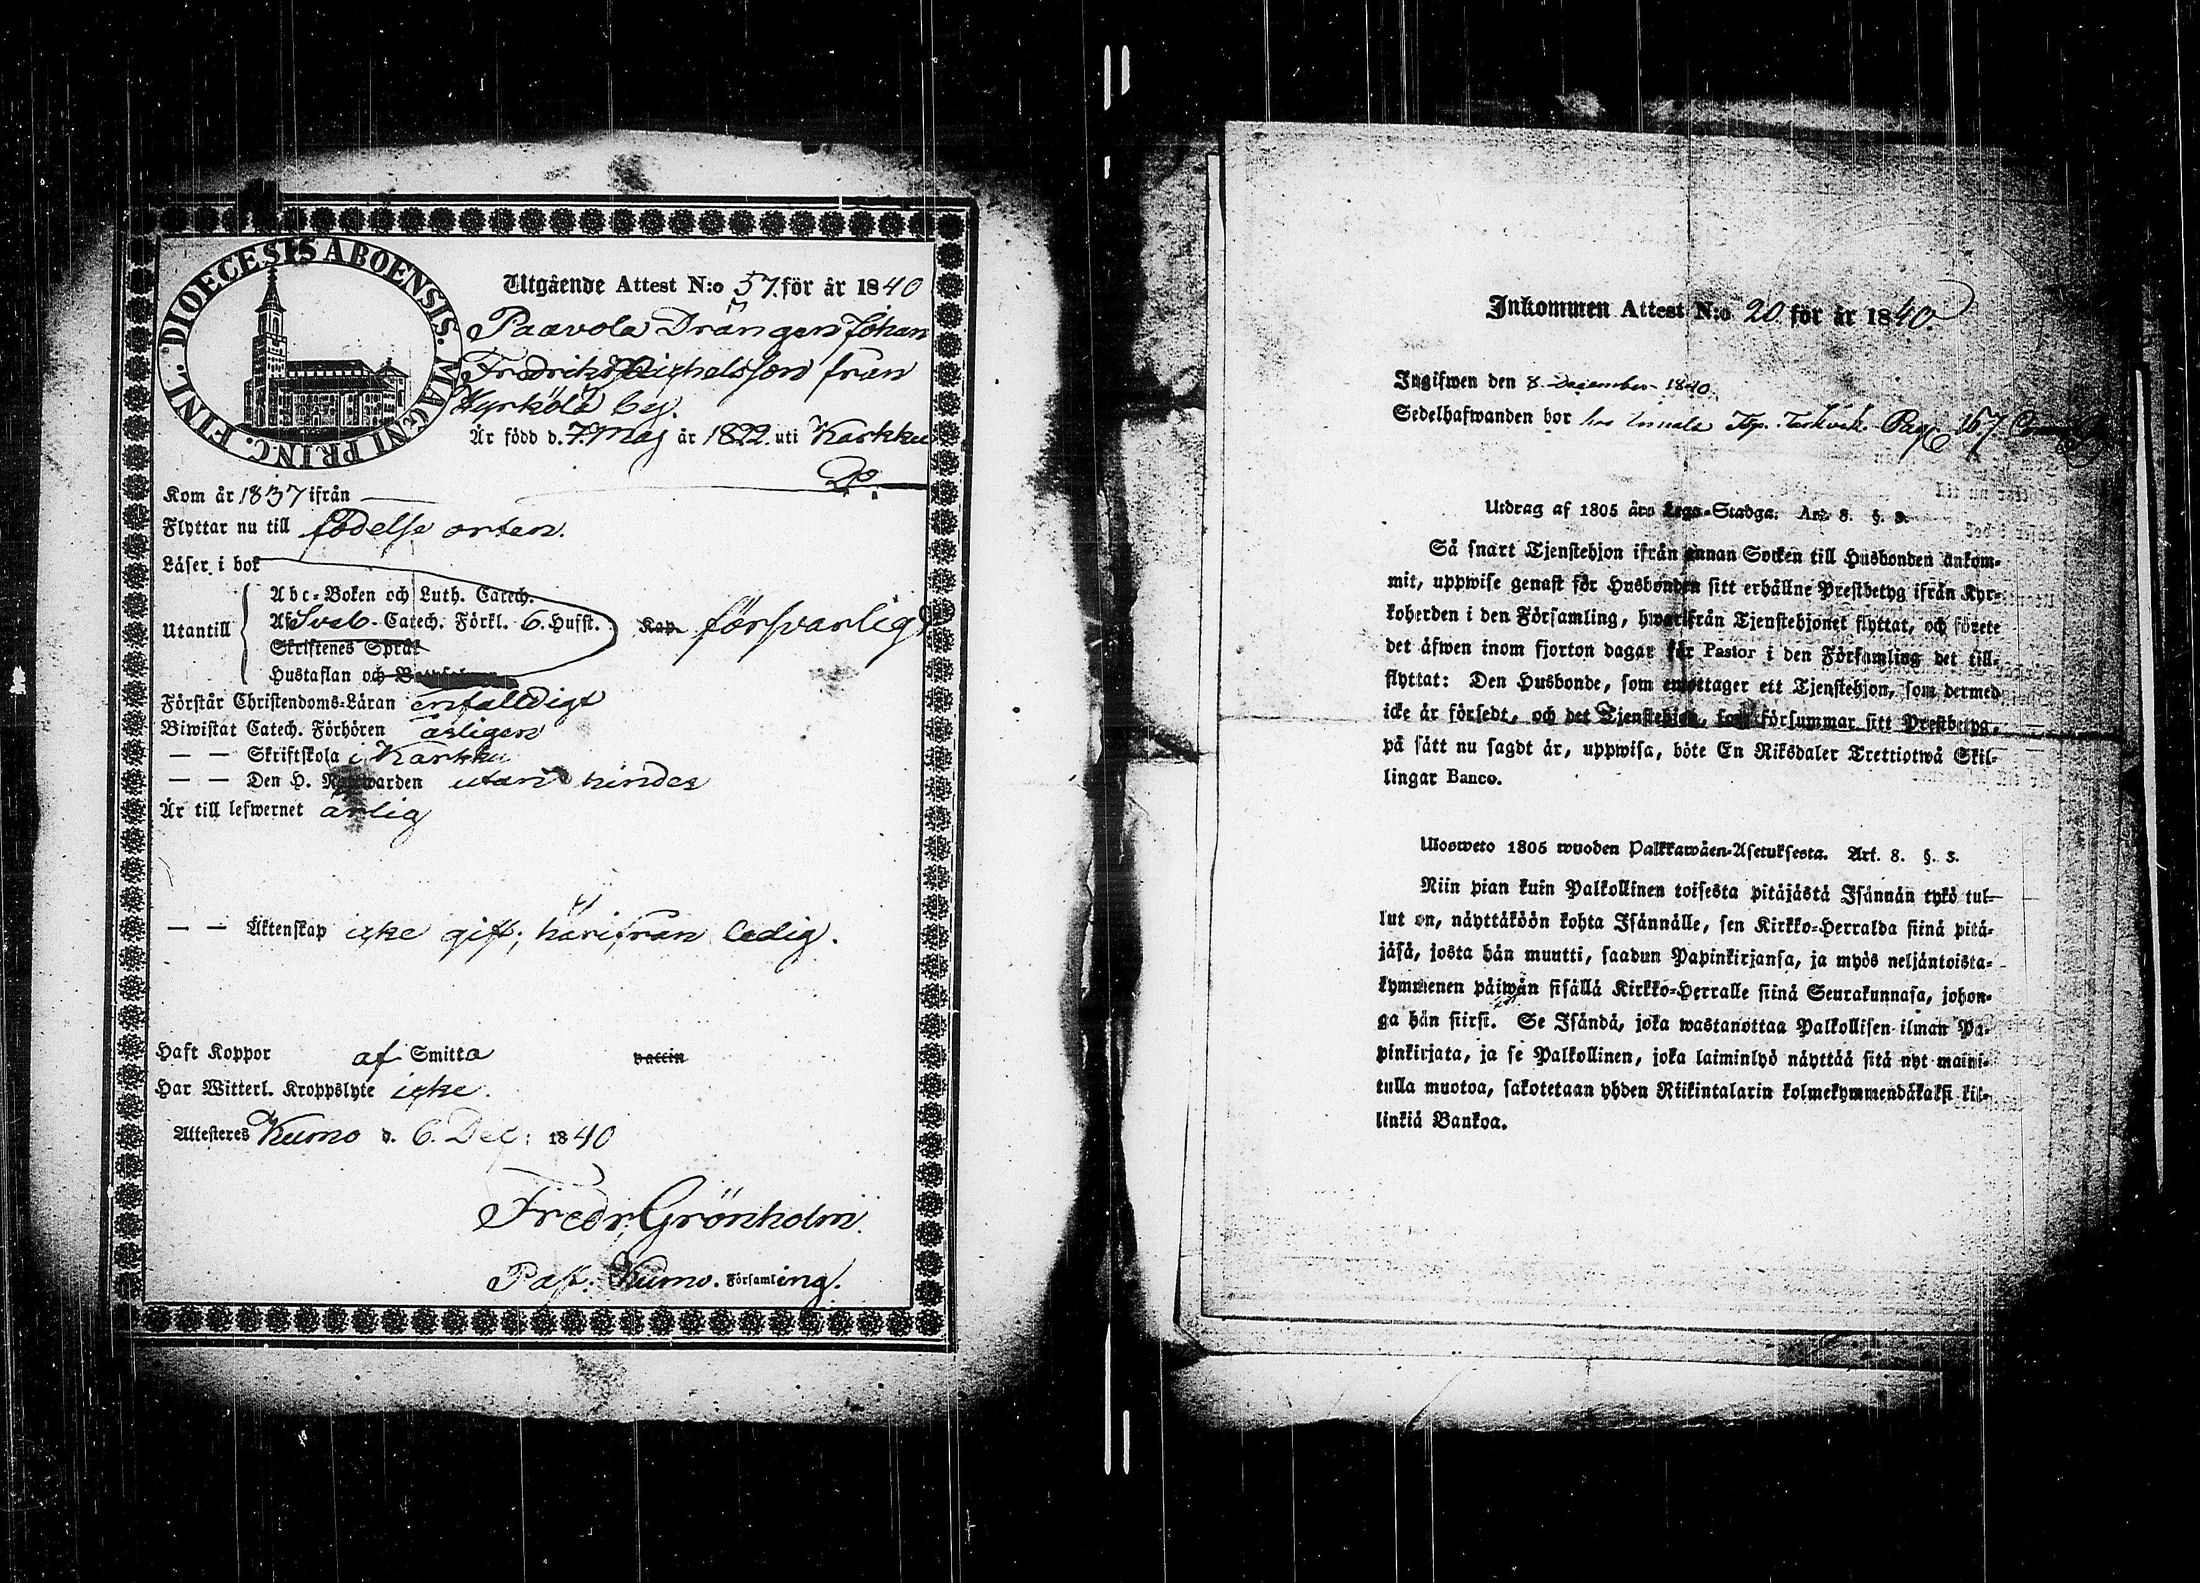 DIOECESIS ABOENSIS. MAGNI PRINC. FINL.
Utgående Attest N:o 57. för år 1840
Paavola Drängen Johan
Fredrik Michelsson från
Kyrkölä by.
Är född d. 7. Maj år 1822. uti Karkku
Kom år 1837 ifrån — Do.
Flyttar nu till födelse orten.
Läser i bok
Utantill
Abc-Boken och Luth. Catech.
Af Sveb. Catech. Förkl. 6. Hufst.
Skriftenes Språk
Hustaflan och
Kap. försvarligt
Förstår Christendoms-Läran enfaldigt
Biwistat Catech. Förhören årligen
— — Skriftskola i Karkku
— — Den H. Nattwarden utan hinder
Är till lefwernet ärlig
— — Äktenskap icke gift; härifrån ledig.
Haft Koppor af Smitta vaccin
Har Witterl. Kroppslyte icke.
Attesteres Kumo d. 6. Dec: 1840
Fredr. Grönholm
Past. Kumo. Församling.
Inkommen Attest N:o 20 för år 1840.
Ingifwen den 8 December 1840.
Sedelhafwanden bor hos Pag 167
Utdrag af 1805 års Lego-Stadga. Art. 8. §. 3.
Så snart Tjenstehjon ifrån annan Socken till Husbonden ankom-
mit, uppwise genast för Husbonden sitt erhållne Prestbetyg ifrån Kyr-
koherden i den Församling, hwarifrån Tjenstehjonet flyttat, och förete
det äfwen inom fjorton dagar för Pastor i den Församling det till-
flyttat: Den Husbonde, som emottager ett Tjenstehjon, som dermed
icke är försedt, och det Tjenstehjon, som försummar sitt Prestbetyg,
på sätt nu sagdt är, uppwisa, böte En Riksdaler Trettiotwå Skil-
lingar Banco.
Uloosweto 1805 wuoden Palkkawäen-Asetuksesta. Art. 8. §. 3.
Niin pian kuin Palkollinen toisesta pitäjästä Isännän tykö tul-
lut on, näyttäköön kohta Isännälle, sen Kirkko-Herralda siinä pitä-
jäsä, josta hän muutti, saadun Papinkirjansa, ja myös neljäntoista-
kymmenen päiwän sisällä Kirkko-Herralle siinä Seurakunnasa, johon-
ga hän siirsi. Se Isändä, joka wastanottaa Palkollisen ilman Pa-
pinkirjata, ja se Palkollinen, joka laiminlyö näyttää sitä nyt maini-
tulla muotoa, sakotetaan yhden Riikintalarin kolmekymmendäkaksi kil-
linkiä Bankoa.